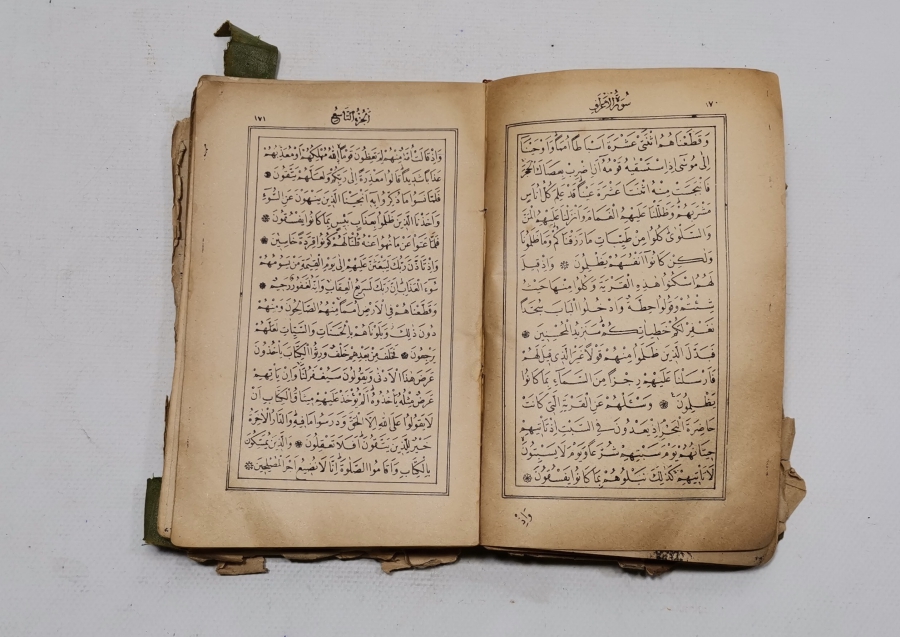 ١٧٠ سُورَةُ الْاَعْرَافِ
وَقَطَّعْنَاهُمُ اثْنَتَيْ عَشْرَةَ اَسْبَاطًا اُمَمًا وَاَوْحَيْنَا
اِلٰى مُوسٰى اِذِ اسْتَسْقٰيهُ قَوْمُهُ اَنِ اضْرِبْ بِعَصَاكَ الْحَجَرَ
فَانْبَجَسَتْ مِنْهُ اثْنَتَا عَشْرَةَ عَيْنًا قَدْ عَلِمَ كُلُّ اُنَاسٍ
مَشْرَبَهُمْ وَظَلَّلْنَا عَلَيْهِمُ الْغَمَامَ وَاَنْزَلْنَا عَلَيْهِمُ الْمَنَّ
وَالسَّلْوٰى كُلُوا مِنْ طَيِّبَاتِ مَا رَزَقْنَاكُمْ وَمَا ظَلَمُونَا
وَلٰكِنْ كَانُوا اَنْفُسَهُمْ يَظْلِمُونَ ۞ وَاِذْ قِيلَ
لَهُمُ اسْكُنُوا هٰذِهِ الْقَرْيَةَ وَكُلُوا مِنْهَا حَيْثُ
شِئْتُمْ وَقُولُوا حِطَّةٌ وَادْخُلُوا الْبَابَ سُجَّدًا
نَغْفِرْ لَكُمْ خَطِيئَاتِكُمْ سَنَزِيدُ الْمُحْسِنِينَ ۞
فَبَدَّلَ الَّذِينَ ظَلَمُوا مِنْهُمْ قَوْلًا غَيْرَ الَّذِي قِيلَ لَهُمْ
فَاَرْسَلْنَا عَلَيْهِمْ رِجْزًا مِنَ السَّمَاءِ بِمَا كَانُوا
يَظْلِمُونَ ۞ وَسْئَلْهُمْ عَنِ الْقَرْيَةِ الَّتِي كَانَتْ
حَاضِرَةَ الْبَحْرِ اِذْ يَعْدُونَ فِي السَّبْتِ اِذْ تَاْتِيهِمْ
حِيتَانُهُمْ يَوْمَ سَبْتِهِمْ شُرَّعًا وَيَوْمَ لَا يَسْبِتُونَ
لَا تَاْتِيهِمْ كَذٰلِكَ نَبْلُوهُمْ بِمَا كَانُوا يَفْسُقُونَ ۞
وَاِذْ
اَلْجُزْءُ التَّاسِعُ ١٧١
وَاِذْ قَالَتْ اُمَّةٌ مِنْهُمْ لِمَ تَعِظُونَ قَوْمًا اللّٰهُ مُهْلِكُهُمْ اَوْ مُعَذِّبُهُمْ
عَذَابًا شَدِيدًا قَالُوا مَعْذِرَةً اِلٰى رَبِّكُمْ وَلَعَلَّهُمْ يَتَّقُونَ ۞
فَلَمَّا نَسُوا مَا ذُكِّرُوا بِهِ اَنْجَيْنَا الَّذِينَ يَنْهَوْنَ عَنِ السُّوءِ
وَاَخَذْنَا الَّذِينَ ظَلَمُوا بِعَذَابٍ بَئِيسٍ بِمَا كَانُوا يَفْسُقُونَ ۞
فَلَمَّا عَتَوْا عَنْ مَا نُهُوا عَنْهُ قُلْنَا لَهُمْ كُونُوا قِرَدَةً خَاسِئِينَ ۞
وَاِذْ تَاَذَّنَ رَبُّكَ لَيَبْعَثَنَّ عَلَيْهِمْ اِلٰى يَوْمِ الْقِيٰمَةِ مَنْ يَسُومُهُمْ
سُوءَ الْعَذَابِ اِنَّ رَبَّكَ لَسَرِيعُ الْعِقَابِ وَاِنَّهُ لَغَفُورٌ رَحِيمٌ ۞
وَقَطَّعْنَاهُمْ فِي الْاَرْضِ اُمَمًا مِنْهُمُ الصَّالِحُونَ وَمِنْهُمْ
دُونَ ذٰلِكَ وَبَلَوْنَاهُمْ بِالْحَسَنَاتِ وَالسَّيِّئَاتِ لَعَلَّهُمْ
يَرْجِعُونَ ۞ فَخَلَفَ مِنْ بَعْدِهِمْ خَلْفٌ وَرِثُوا الْكِتَابَ يَاْخُذُونَ
عَرَضَ هٰذَا الْاَدْنٰى وَيَقُولُونَ سَيُغْفَرُ لَنَا وَاِنْ يَاْتِهِمْ
عَرَضٌ مِثْلُهُ يَاْخُذُوهُ اَلَمْ يُؤْخَذْ عَلَيْهِمْ مِيثَاقُ الْكِتَابِ اَنْ
لَا يَقُولُوا عَلَى اللّٰهِ اِلَّا الْحَقَّ وَدَرَسُوا مَا فِيهِ وَالدَّارُ الْاٰخِرَةُ
خَيْرٌ لِلَّذِينَ يَتَّقُونَ اَفَلَا تَعْقِلُونَ ۞ وَالَّذِينَ يُمَسِّكُونَ
بِالْكِتَابِ وَاَقَامُوا الصَّلٰوةَ اِنَّا لَا نُضِيعُ اَجْرَ الْمُصْلِحِينَ ۞